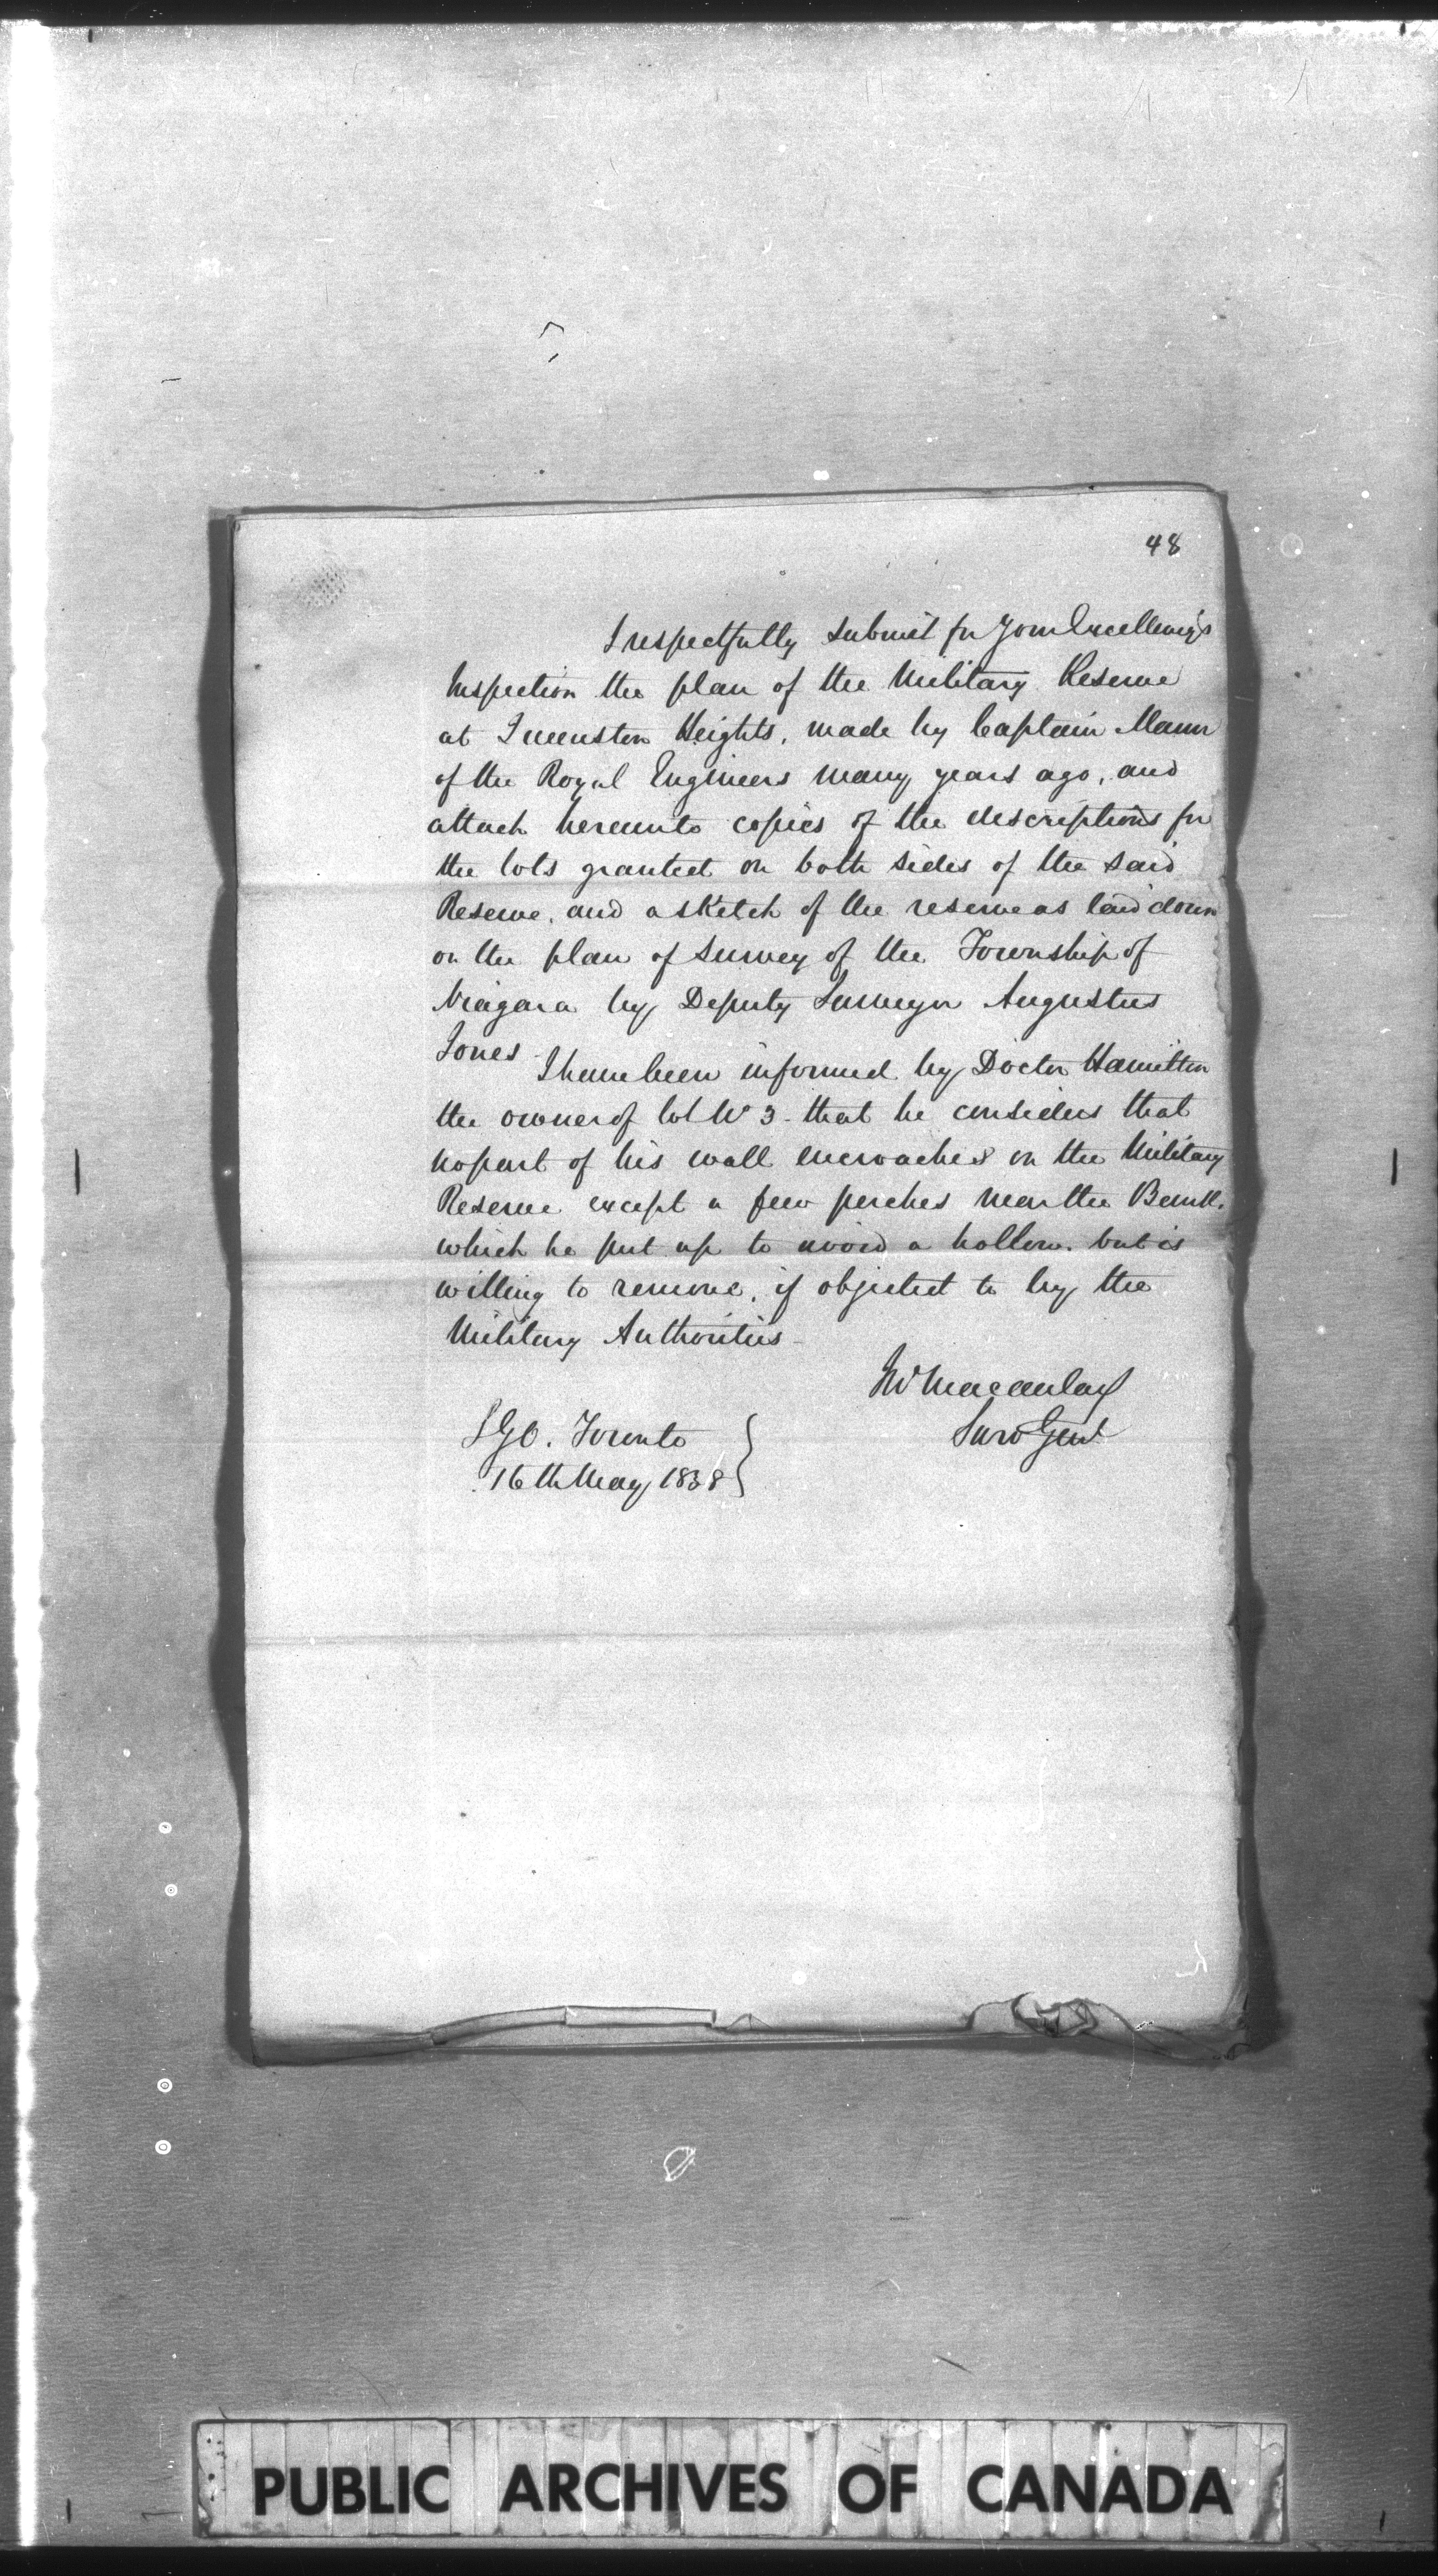 48
I respectfully submit for Your Excellency's
Inspection the plan of the Military Reserve
at Queenston Heights, made by Captain Mann
of the Royal Engineers many years ago, and
attach hereunto copies of the descriptions for
the lots granted on both sides of the said
Reserve, and a sketch of the reserve as laid down
on the plan of Survey of the Township of
Niagara by Deputy Surveyor Augustus
Jones -
I have been informed by Doctor Hamilton
the owner of lot No 3 - that he considers that
no part of his wall encroaches on the Military
Reserve except a few perches near the Bank,
which he put up to avoid a hollow. but is
willing to remove, if objected to by the
Military Authorities -
Jno Macaulay
Surv Genl
S.G.O. Toronto
16th May 1838
PUBLIC ARCHIVES OF CANADA